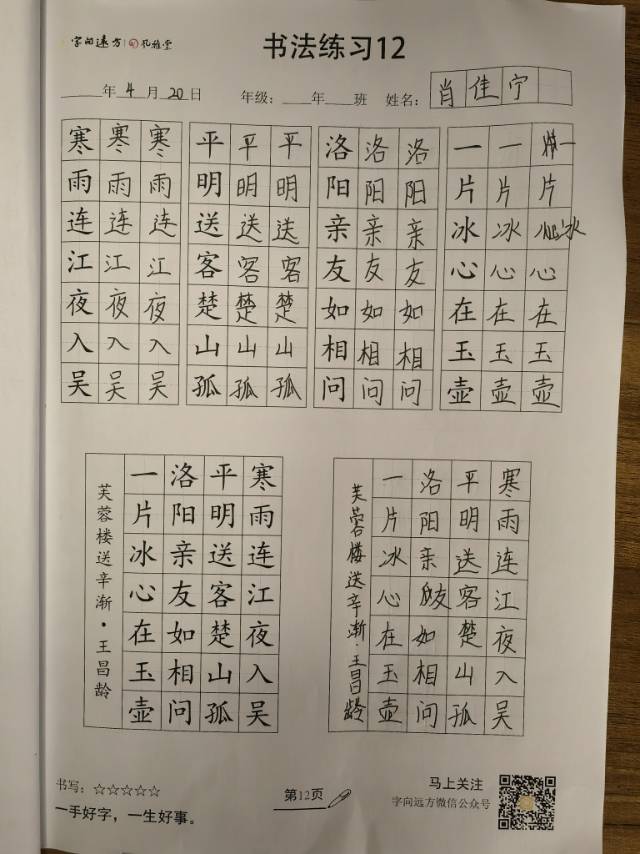 字向远方 | 风雅堂
书法练习12
____年 4 月 20 日 年级：____年____班 姓名： 肖佳宁
寒 寒 寒 平 平 平 洛 洛 洛 一 一 一
雨 雨 雨 明 明 明 阳 阳 阳 片 片 片
连 连 连 送 送 送 亲 亲 亲 冰 冰 心冰
江 江 江 客 客 客 友 友 友 心 心 心
夜 夜 夜 楚 楚 楚 如 如 如 在 在 在
入 入 入 山 山 山 相 相 相 玉 玉 玉
吴 吴 吴 孤 孤 孤 问 问 问 壶 壶 壶
寒雨连江夜入吴
平明送客楚山孤
洛阳亲友如相问
一片冰心在玉壶
芙蓉楼送辛渐·王昌龄
寒雨连江夜入吴
平明送客楚山孤
洛阳亲友如相问
一片冰心在玉壶
芙蓉楼送辛渐·王昌龄
书写：☆☆☆☆☆
一手好字，一生好事。
第12页
马上关注
字向远方微信公众号